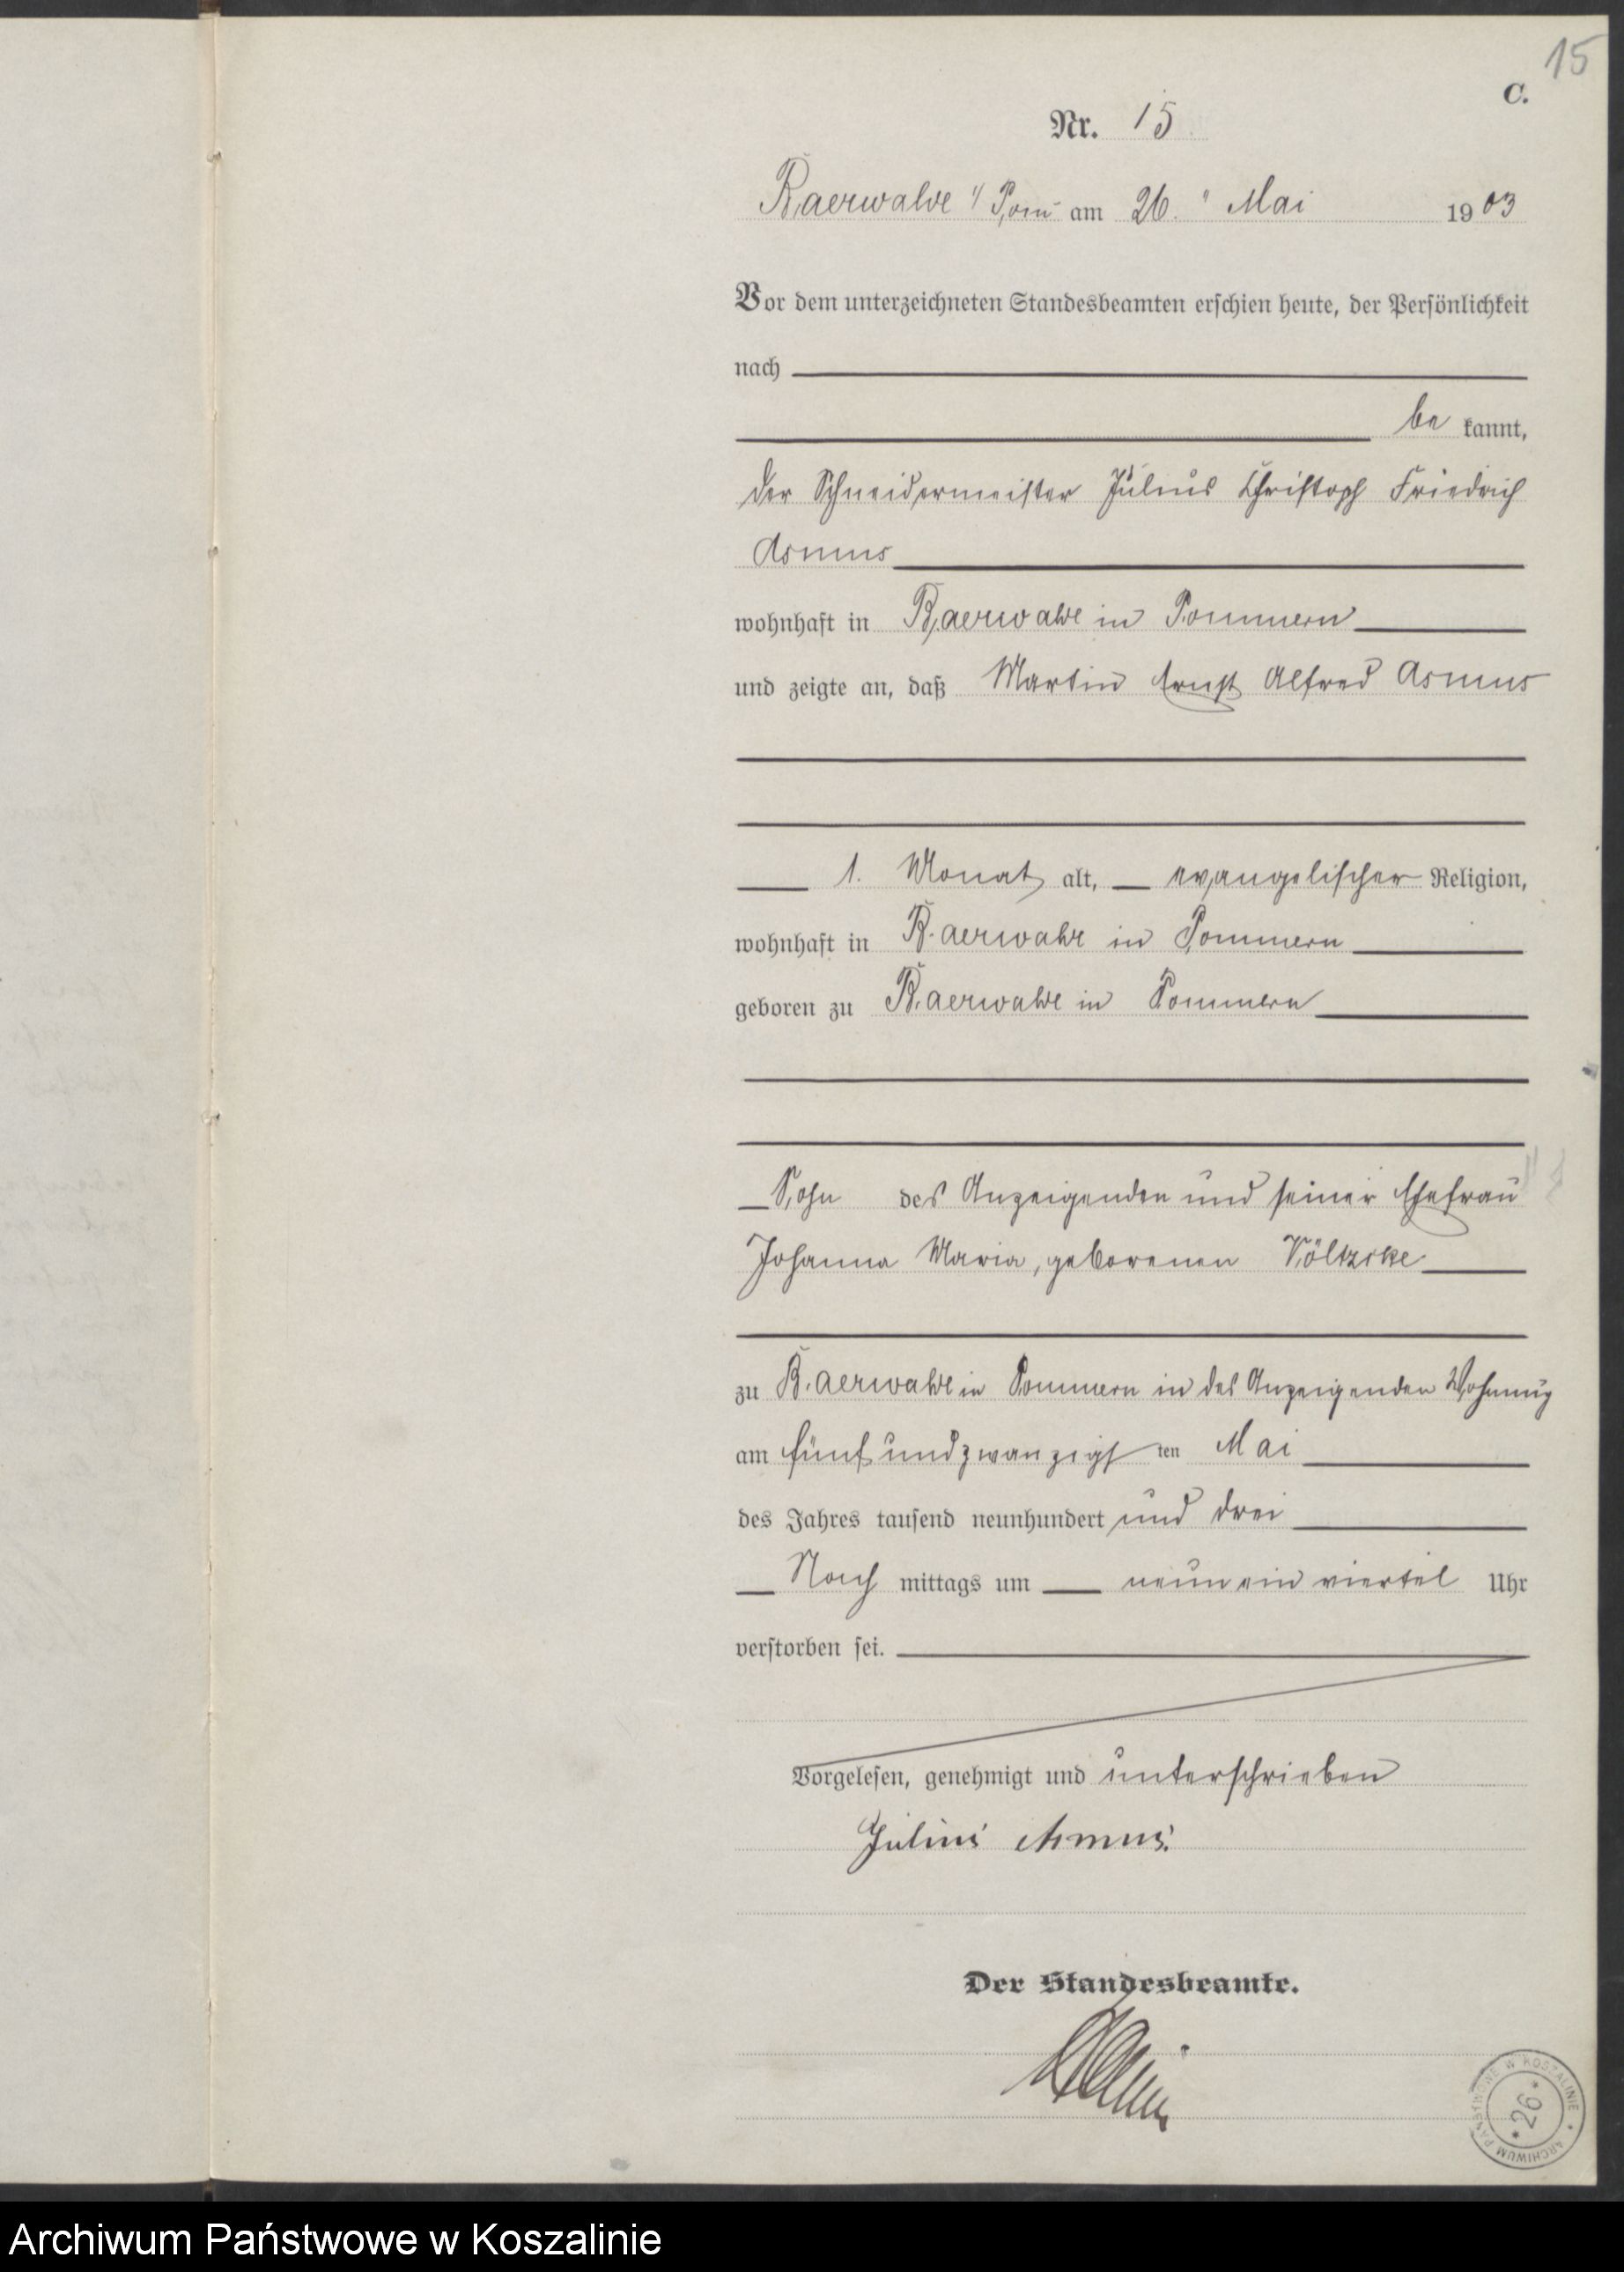 15
C.
Nr. 15
Baerwalde i/Pom am 26. " Mai 1903
Vor dem unterzeichneten Standesbeamten erschien heute, der Persönlichkeit
nach
be kannt,
der Schneidermeister Julius Christoph Friedrich
Asmus
wohnhaft in Baerwalde in Pommern
und zeigte an, daß Martin Ernst Alfred Asmus
1. Monat alt, evangelischer Religion,
wohnhaft in Baerwalde in Pommern
geboren zu Baerwalde in Pommern
Sohn des Anzeigenden und seiner Ehefrau
Johanna Maria, geborenen Völtzcke
zu Baerwalde in Pommern in des Anzeigenden Wohnung
am fünf und zwanzigsten Mai
des Jahres tausend neunhundert und drei
Nach mittags um neun ein viertel Uhr
verstorben sei.
Vorgelesen, genehmigt und unterschrieben
Julius Asmus.
Der Standesbeamte.
ARCHIWUM PAŃSTWOWE W KOSZALINIE
* 26 *
Archiwum Państwowe w Koszalinie